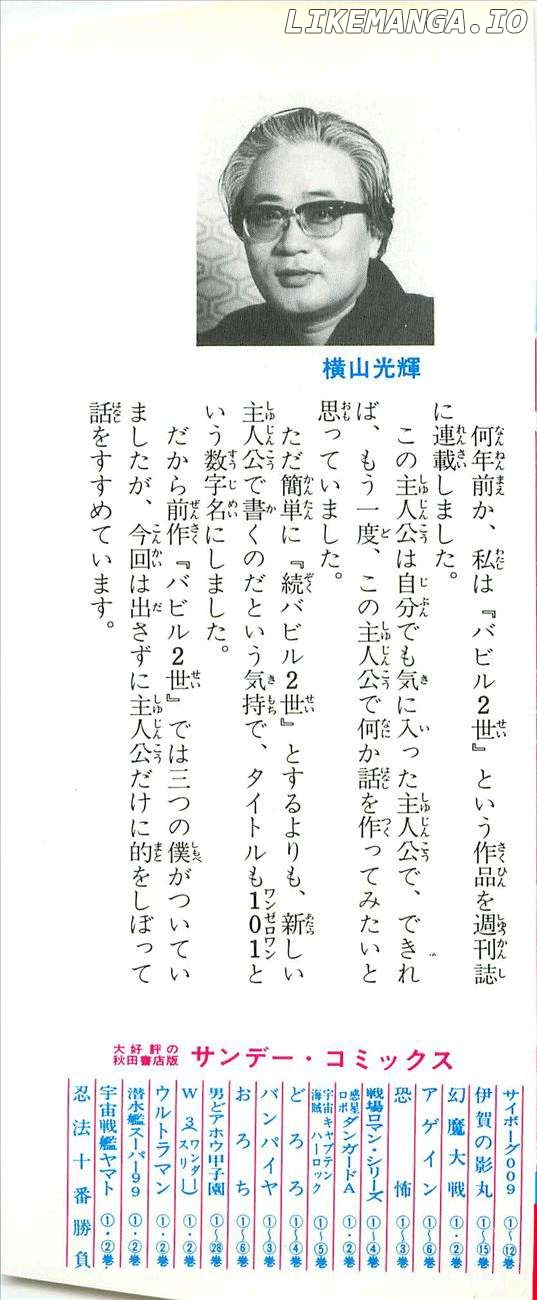 LIKEMANGA.IO
横山光輝
何年前か、私は『バビル2世』という作品を週刊誌
に連載しました。
この主人公は自分でも気に入った主人公で、できれ
ば、もう一度、この主人公で何か話を作ってみたいと
思っていました。
ただ簡単に『続バビル2世』とするよりも、新しい
主人公で書くのだという気持で、タイトルも101と
いう数字名にしました。
だから前作『バビル2世』では三つの僕がついてい
ましたが、今回は出さずに主人公だけに的をしぼって
話をすすめています。
大好評の
秋田書店版
サンデー・コミックス
サイボーグ009 ①〜⑫巻
伊賀の影丸 ①〜⑮巻
幻魔大戦 ①・②巻
アゲイン ①〜⑥巻
恐怖 ①〜③巻
戦場ロマン・シリーズ ①〜④巻
惑星ロボ ダンガードA ①・②巻
宇宙海賊 キャプテンハーロック ①〜⑤巻
どろろ ①〜④巻
バンパイヤ ①〜③巻
おろち ①〜⑥巻
男どアホウ甲子園 ①〜㉘巻
W3(ワンダースリー) ①・②巻
ウルトラマン ①・②巻
潜水艦スーパー99 ①・②巻
宇宙戦艦ヤマト ①・②巻
忍法十番勝負